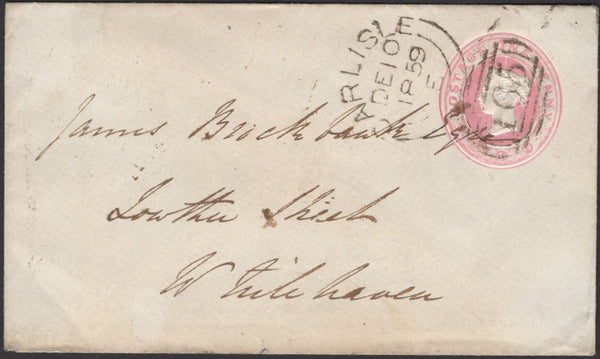 CARLISLE
DE 10
1859
E
POSTAGE ONE PENNY
James Brockbank Esqre
Lowther Street
Whitehaven